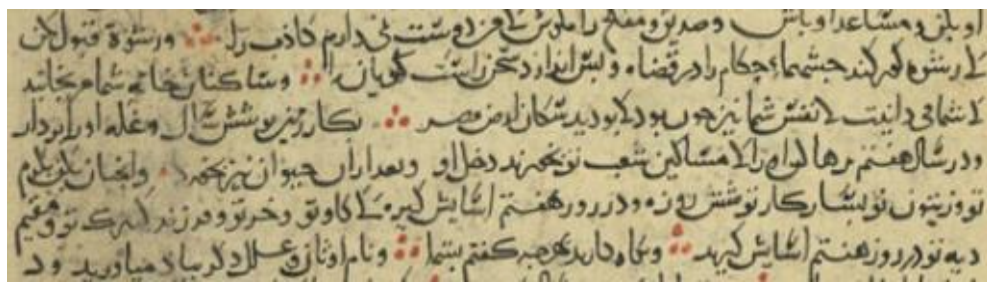 او بلن و مساعد او باش وصدیق و مفلح را مکش که من دوست نمی دارم کاذب را و رشوة قبول مکن
که رشوه کور کند چشمهاء حکام را در قضاء و پس اندازد سخن راست کویان را و ساکنان خانه شما مرنجانید
که شما می دانیت که نفس شما نیز چون بود که بودید سکان ارض مصر بکار زمین تو شش سال و غله او را بردار
و در سال هفتم رها کن او را تا مساکین شعب تو بخورند دخل او و بعد ازان حیوان نیز بخورد و همچنان بکن بکرم
تو و زیتون تو بسیار کار تو شش روزه و در روز هفتم اسایش کیر که تا کاو تو و خر تو و فرزند کنیزک تو و مقیم
دیه تو در روز هفتم اسایش کیرند و نکاه دارید هرچه کفتم بشما و نام اوثان و علل دیکر بیاد میاورید و در